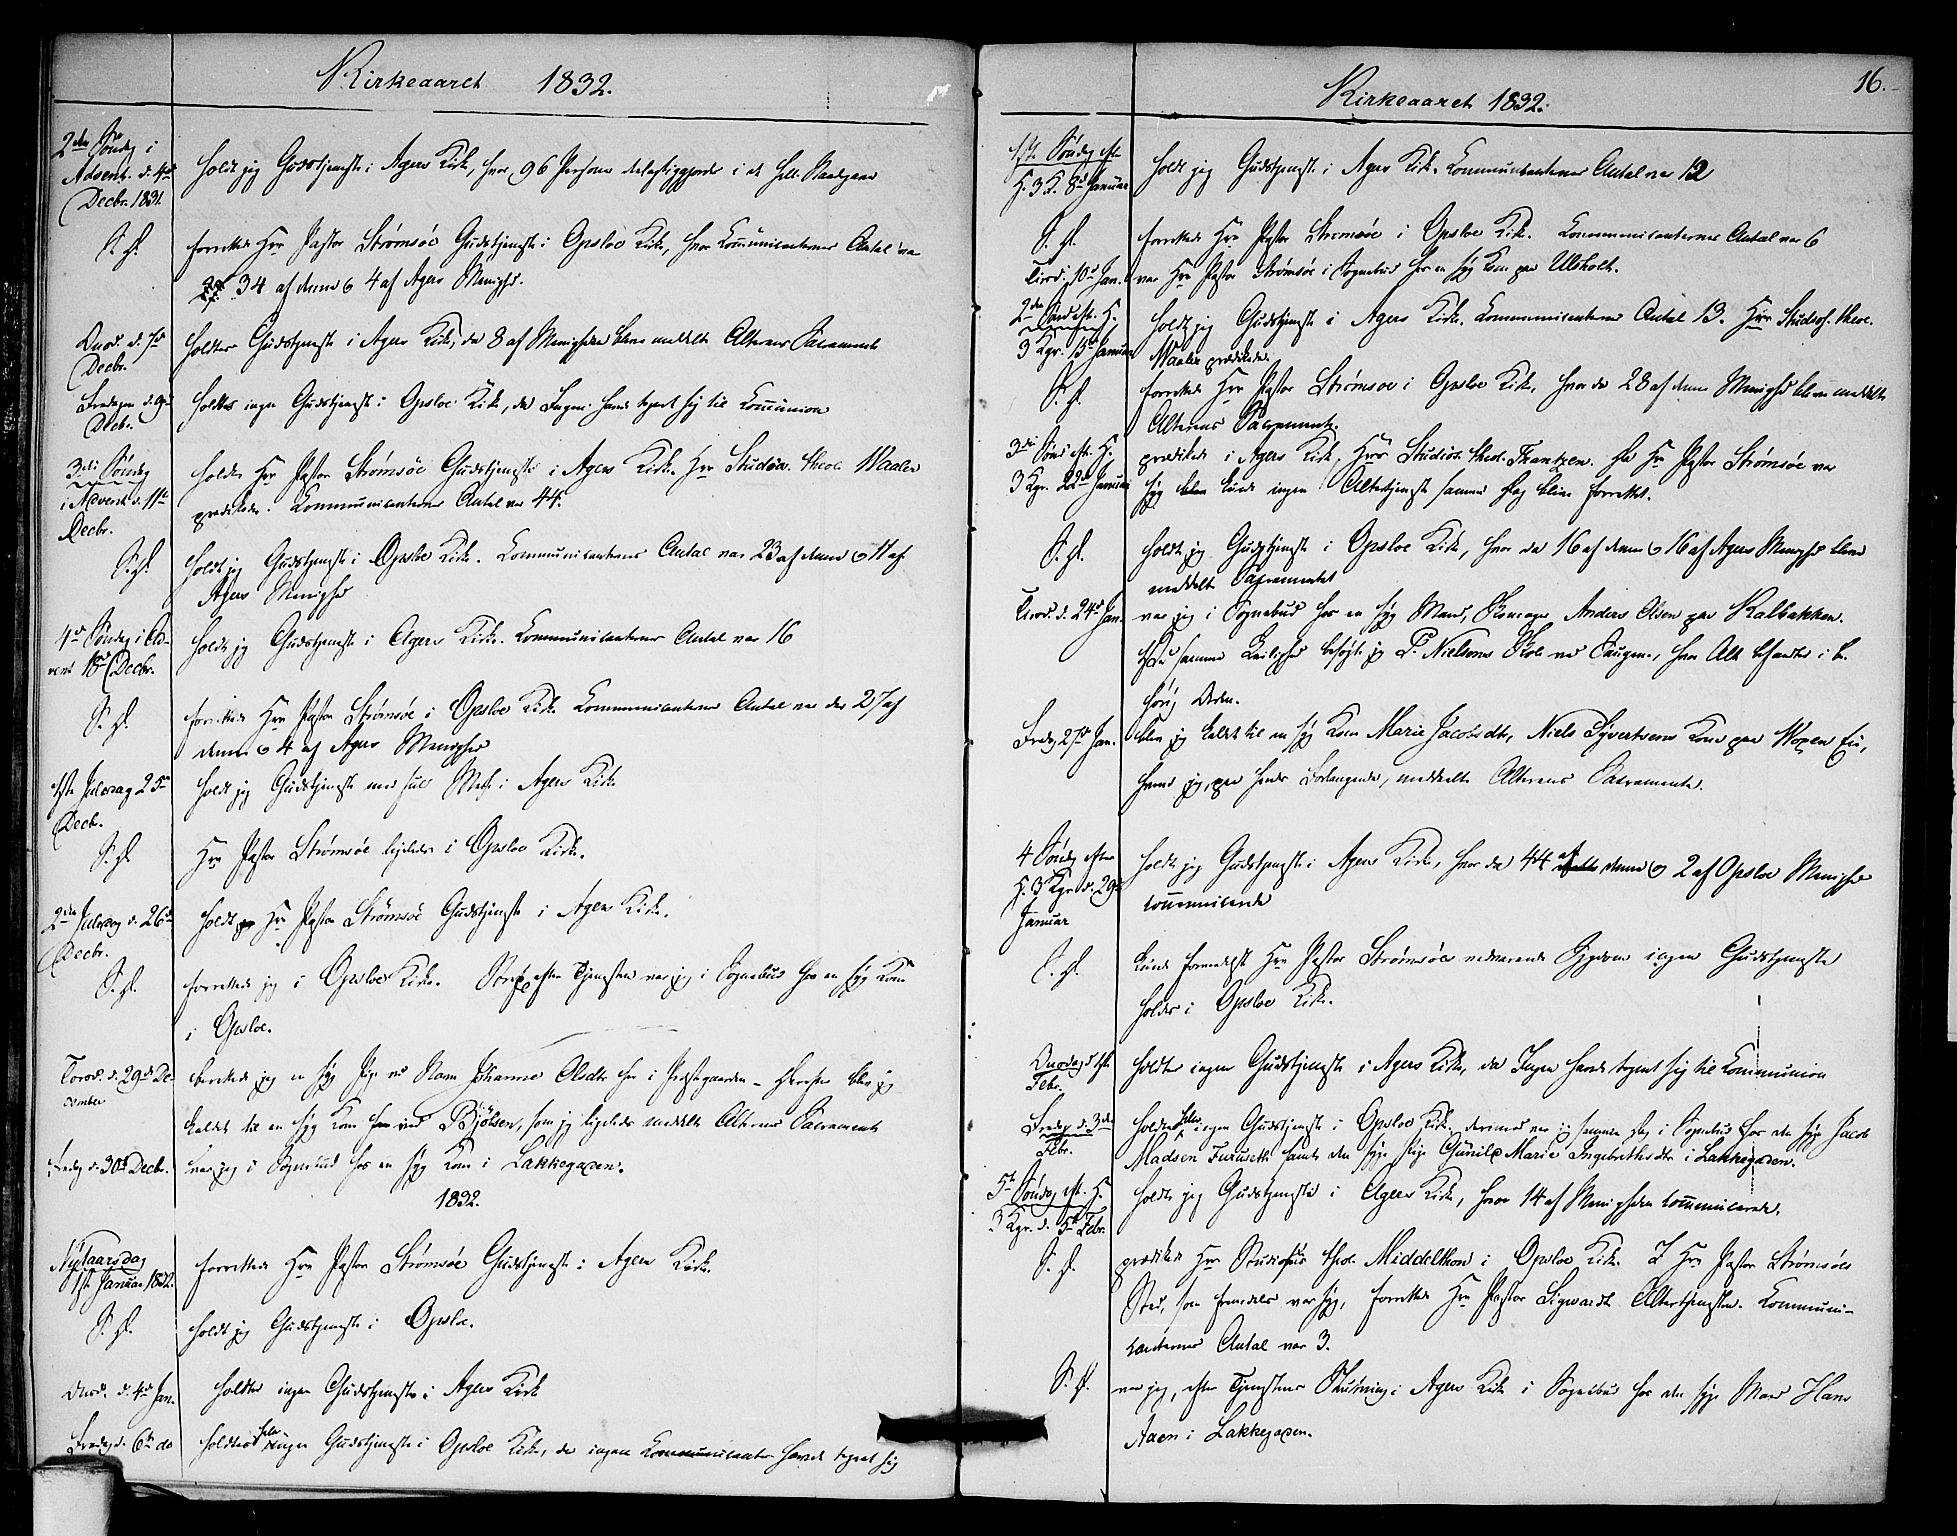 Kirkeaaret 1832.
2den Søndag i
Advent d. 4de
Decbr. 1831.
holdt jeg Gudstjeneste i Agers Kirke, hvor 96 Personer deelagtiggjordes i de hell.
S. D.
forrettede Hr Pastor Strømsøe Gudstjeneste i Opsloe Kirke, hvor Communicanternes Antal var
34 af denne og 4 af Agers Menighed.
Onsd. d. 7de
Decbr.
holdtes Gudstjeneste i Agers Kirke, da 8 af Menigheden bleve meddelte Alterens Sacrament
Fredagen d. 9de
Decbr.
holdtes ingen Gudstjeneste i Opsloe Kirke, da Ingen havde tegnet sig til Communion
3die Søndag
i Advent d. 11te
Decbr.
holdt Hr Pastor Strømsøe Gudstjeneste i Agers Kirke. Hr Studios. theol. Waaler
prædikede. Communicanternes Antal var 44.
S. D.
holdt jeg Gudstjeneste i Opsloe Kirke. Communicanternes Antal var 23 af denne og 11 af
Agers Menighed
4de Søndag i Ad-
vent 18de Decbr.
holdt jeg Gudstjeneste i Agers Kirke. Communicanternes Antal var 16
S. D.
forrettede Hr Pastor Strømsøe i Opsloe Kirke. Communicanternes Antal var der 27 af
denne og 4 af Agers Menighed
1ste Juledag 25de
Decb.
holdt jeg Gudstjeneste med fuld Messe i Agers Kirke
S. D.
Hr Pastor Strømsøe ligeledes i Opsloe Kirke.
2den Juledag d. 26de
Decbr.
holdt Hr Pastor Strømsøe Gudstjeneste i Agers Kirke.
S. D.
forrettede jeg i Opsloe Kirke. Strax efter Tjenesten var jeg i Sognebud hos en syg Kone
i Opsloe.
Torsd. d. 29de De-
cember
berettede jeg en syg Pige ved Navn Johanne Olsdtr her i Præstegaarden – Derefter blev jeg
kaldet til en syg Kone ved Bjølsen, som jeg ligeledes meddelte Alterens Sacrament
Fredag d. 30te Decbr.
var jeg i Sognebud hos en syg Kone i Lakkegaden.
1832.
Nytaarsdag
1ste Januar 1832.
forrettede Hr Pastor Strømsøe Gudstjeneste i Agers Kirke.
S. D.
holdt jeg Gudstjeneste i Opsloe.
Onsd. d. 4de Jan.
holdtes ingen Gudstjeneste i Agers Kirke
Fredag d. 6te do
holdtes heller ingen Gudstjeneste i Opsloe Kirke, da ingen Communicanter havde tegnet sig
Kirkeaaret 1832.
16.
1ste Søndag eft.
H. 3 K. 8de Januar
holdt jeg Gudstjeneste i Agers Kirke. Communicanternes Antal var 12
S. D.
forrettede Hr Pastor Strømsøe i Opsloe Kirke. Communicanternes Antal var 6
Tirsd. 10de Jan.
var Hr Pastor Strømsøe i Sognebud hos en syg Kone paa Ulsholt.
2den Sønd. eft. H.
3 Kgr. 15de Januar
holdt jeg Gudstjeneste i Agers Kirke. Communicanternes Antal 13. Herr Studios. theol.
Waaler prædikede.
S. D.
forrettede Hr Pastor Strømsøe i Opsloe Kirke, hvor da 28 af denne Menighed bleve meddelte
Alterens Sacramente.
3die Sønd. eft. H.
3 Kgr. 22de Januar
prædikede i Agers Kirke Herr Studios. theol. Frantzen. Da Hr Pastor Strømsøe var
syg kunde ingen Altertjeneste samme Dag blive forrettet.
S. D.
holdt jeg Gudstjeneste i Opsloe Kirke, hvor da 16 af denne og 16 af Agers Menighed bleve
meddelte Sacramentet
Tirsd. d. 24de Jan.
var jeg i Sognebud hos en syg Mand, Anders Olsen paa Kalbakken.
Ved samme Leilighed besøgte jeg P. Nielsens Skole ved Haugen, hvor Alt befandtes i be-
hørig Orden.
Fredag 27de Jan.
blev jeg kaldet til en syg Kone Marie Jacobsdtr, Niels Syvertsens Kone paa Woxen Eie,
hvem jeg, paa hendes Forlangende, meddeelte Alterens Sacramente.
4 Søndag efter
H. 3 Kgr. d. 29de
Januar
holdt jeg Gudstjeneste i Agers Kirke, hvor da 44 af denne og 2 af Opsloe Menighed
communicerede
S. D.
kunde formedelst Hr Pastor Strømsøes vedvarende Sygdom ingen Gudstjeneste
holdes i Opsloe Kirke.
Onsdag d. 1ste
Febr.
holdtes ingen Gudstjeneste i Agers Kirke, da Ingen havde tegnet sig til Communion
Fredag d. 3die
Febr.
holdtes heller ingen Gudstjeneste i Opsloe Kirke, derimod var jeg samme Dag i Sognebud hos den syge Jacob
Madsen Furuseth samt den syge Pige Gunild Marie Ingebrethsdtr i Lakkegaden.
5te Søndag eft. H.
3 Kgr. d. 5te Febr.
holdt jeg Gudstjeneste i Agers Kirke, hvor 14 af Menigheden communicerede.
S. D.
prædikede Hr Studiosus theol. Middelthon i Opsloe Kirke. I Hr Pastor Strømsøes
Sted, som fremdeles var syg, forrettede Hr Pastor Sigwardt Altertjenesten. Communi-
canternes Antal var 3.
S. D.
var jeg, efter Tjenestens Slutning i Agers Kirke i Sognebud hos den syge Mand Hans
Aaen i Lakkegaden.